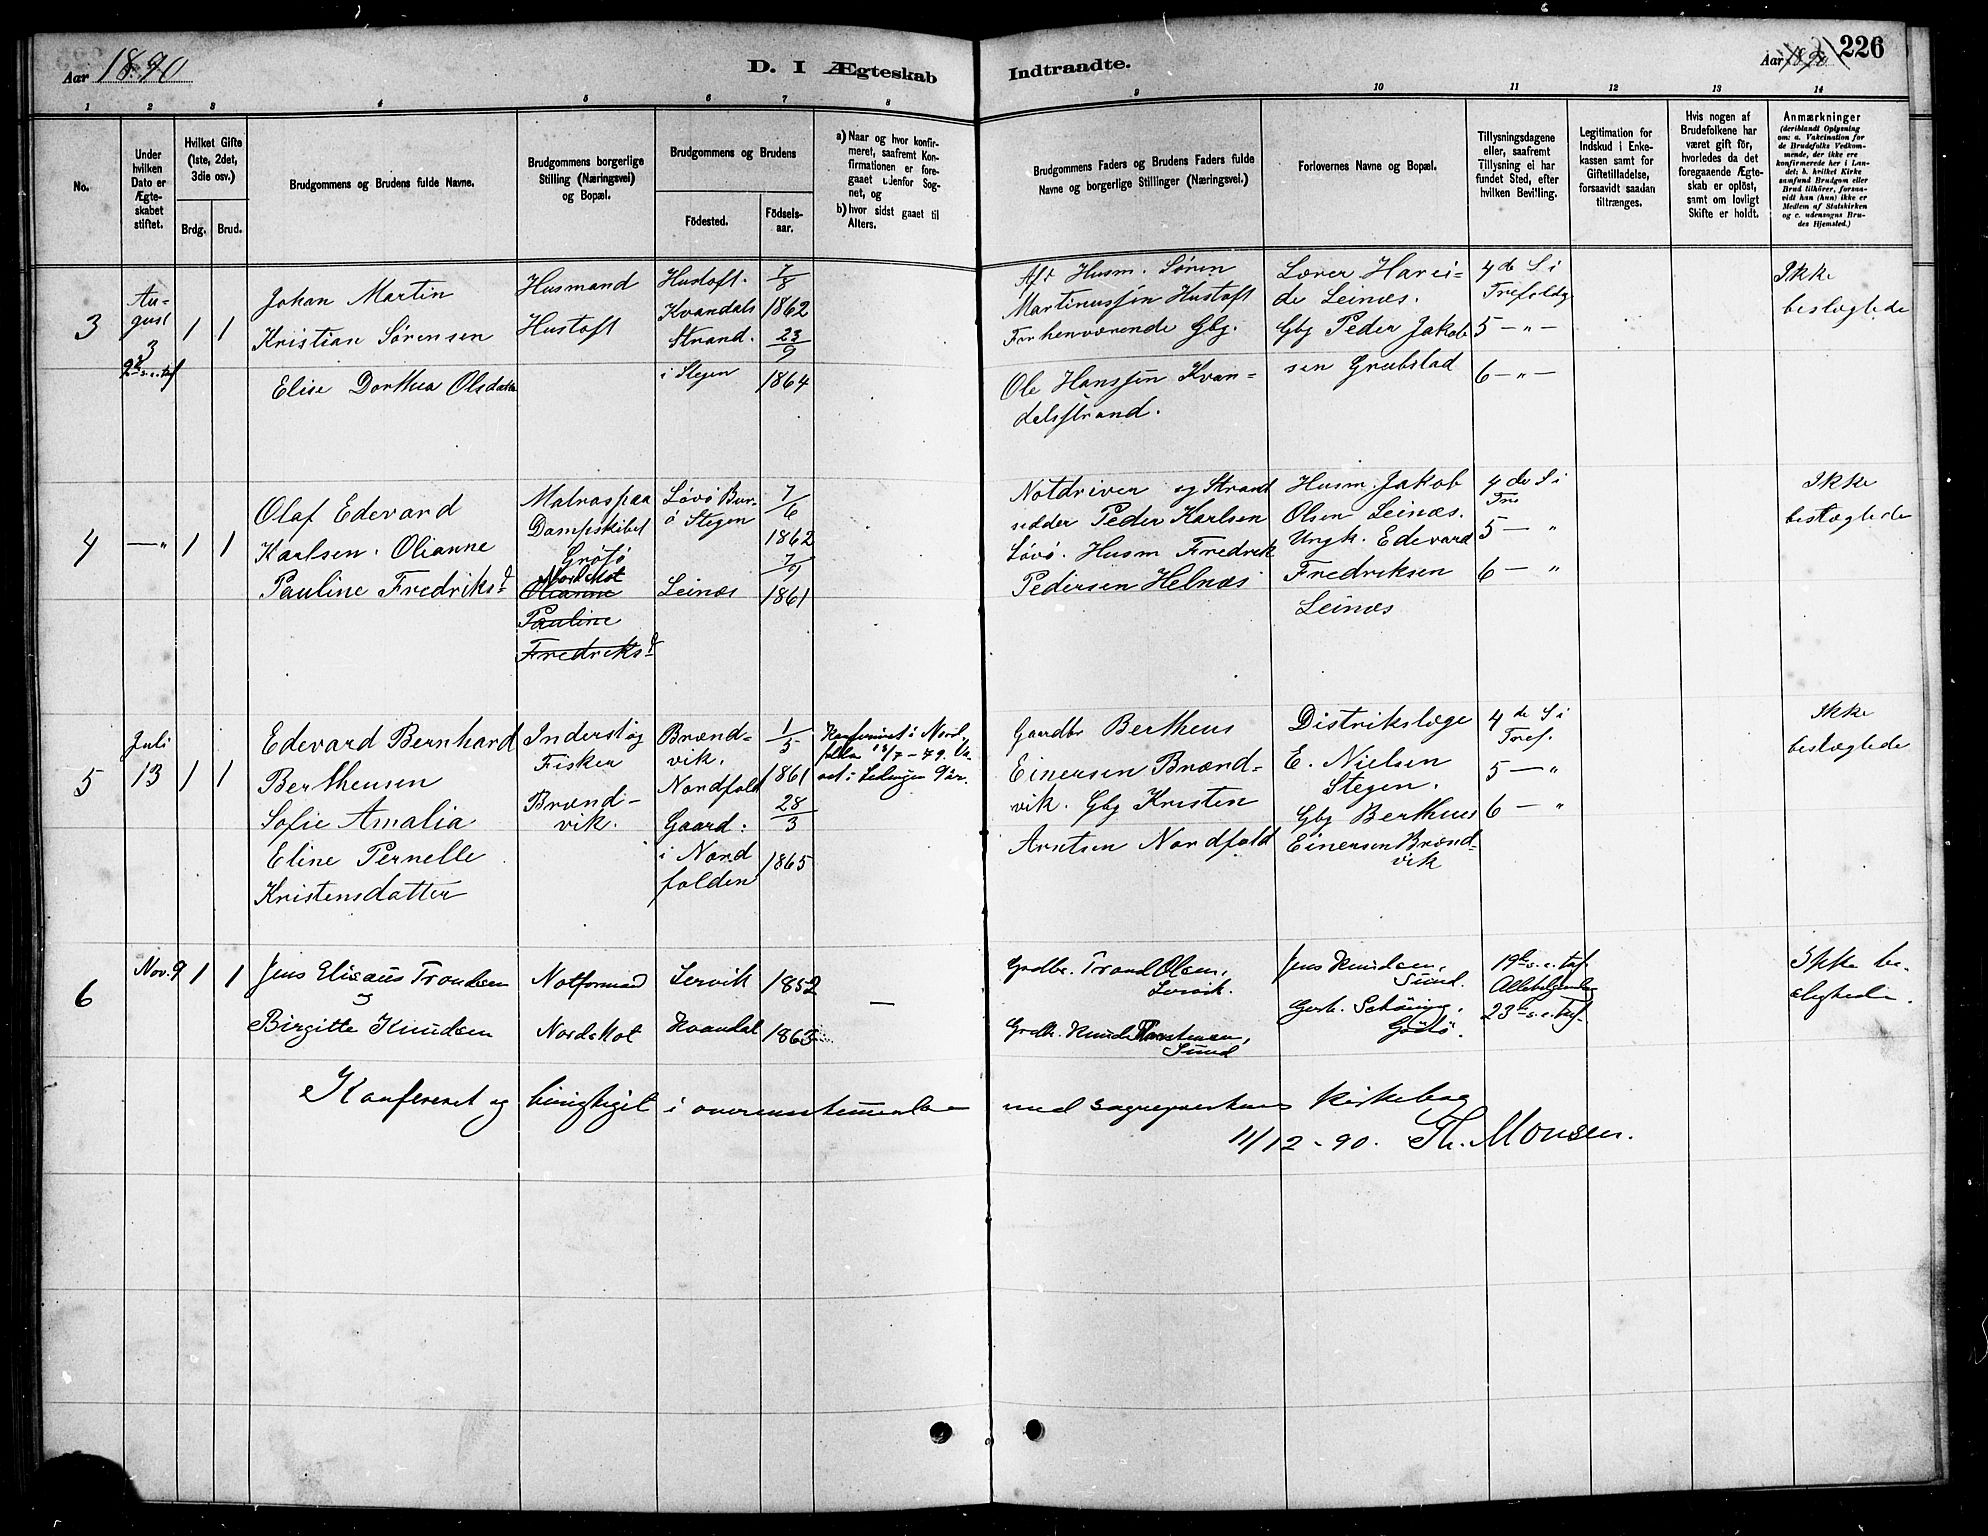 Aar 1890
D. I Ægteskab
Indtraadte.
Aar 1890
226
1
2
3
4
5
6
7
8
9
10
11
12
13
14
No.
Under
hvilken
Dato er
Ægte-
skabet
stiftet.
Hvilket Gifte
(1ste, 2det,
3die osv.)
Brdg.
Brud.
Brudgommens og Brudens fulde Navne.
Brudgommens borgerlige
Stilling (Næringsvei)
og Bopæl.
Brudgommens og Brudens
Födested.
Födsels-
aar.
a) Naar og hvor konfir-
meret, saafremt Kon-
firmationen er fore-
gaaet udenfor Sog-
net, og
b) hvor sidst gaaet til
Alters.
Brudgommens Faders og Brudens Faders fulde
Navne og borgerlige Stillinger (Næringsvei.)
Forlovernes Navne og Bopæl.
Tillysningsdagene
eller, saafremt
Tillysning ei har
fundet Sted, efter
hvilken Bevilling.
Legitimation for
Indskud i Enke-
kassen samt for
Giftetilladelse,
forsaavidt saadan
tiltrænges.
Hvis nogen af
Brudefolkene har
været gift för,
hvorledes da det
foregaaende Ægte-
skab er oplöst,
samt om lovligt
Skifte er holdt.
Anmærkninger
(deriblandt Oplysning
om: a. Vakcination for
de Brudefolks Vedkom-
mende, der ikke ere
konfirmerede her i Lan-
det; b. hvilket Kirke
samfund Brudgom eller
Brud tilhörer, forsaa-
vidt han (hun) ikke er
Medlem af Statskirken
og c. udensogns Bru-
des Hjemsted.)
3
Au-
gust
3
9de s. e. tref
1
1
Johan Martin
Kristian Sørensen
Elise Dorthea Olsdatter
Husmand
Hustoft
Hustoft.
Kvandals
Strand.
i Stegen
7/8
1862
23/9
1864
Afd Husm. Søren
Martinussen Hustoft
Forhenværende Gbg.
Ole Hanssen Kvan-
delsstrand.
Lærer Harei-
de Leinæs.
Gbg Peder Jakob-
sen Grubstad
4de S i
Trefoldg
5 — „ —
6 — „ —
Ikke
beslægtede
4
— „
1
1
Olaf Edevard
Karlsen. Olianne
Pauline Fredriksd
Matros paa
Dampskibet
Grøtø
Nordskot
Olianne
Pauline
Fredriksd
Løvø Bur-
ø Stegen
Leinæs
7/6
1862
7/9
1861
Notdriver og Strand
sidder Peder Karlsen
Løvø. Husm Fredrik
Pedersen Helnæs
Husm. Jakob
Olsen Leinæs.
Ungk. Edevard
Fredriksen
Leinæs
4de S i
Tre
5 — „
6 — „
Ikke
beslægtede
5
Juli
13
1
1
Edevard Bernhard
Bertheusen
Sofie Amalia
Eline Pernelle
Kristensdatter
Inderst og
Fisker
Brænd-
vik.
Brænd-
vik.
Nordfold
Gaard:
i Nord
folden
1/5
1861
28/3
1865
Konfirmeret i Nord-
folla 13/7 – 79.
Gaardbr Bertheus
Einersen Brænd-
vik. Gbg Kristen
Arntsen Nordfold
Distriktslæge
E. Nielsen
Stegen.
Gbg Bertheus
Einersen Brænd-
vik
4de S i
Tref.
5 — „
6 — „
Ikke
beslægtede
6
Nov. 9
1
1
Jens Elisæus Trondsen
og
Birgitte Knudsen
Notformand
Nordskot
Lervik
Kvandal
1852
1863
—
Grdbr. Trond Olsen,
Lervik.
Grdbr. Knud Torstensen,
Sund
Jens Knudsen,
Sund.
Gerh. Schöning,
Grötö.
19de s. e. tref.
Allehelgensdag
23de s. e. tref.
Ikke be-
slegtede.
Konfereret og berigtiget i overensstemmelse med sogneprestens Kirkebog
11/12 - 90. Th. Monsen.